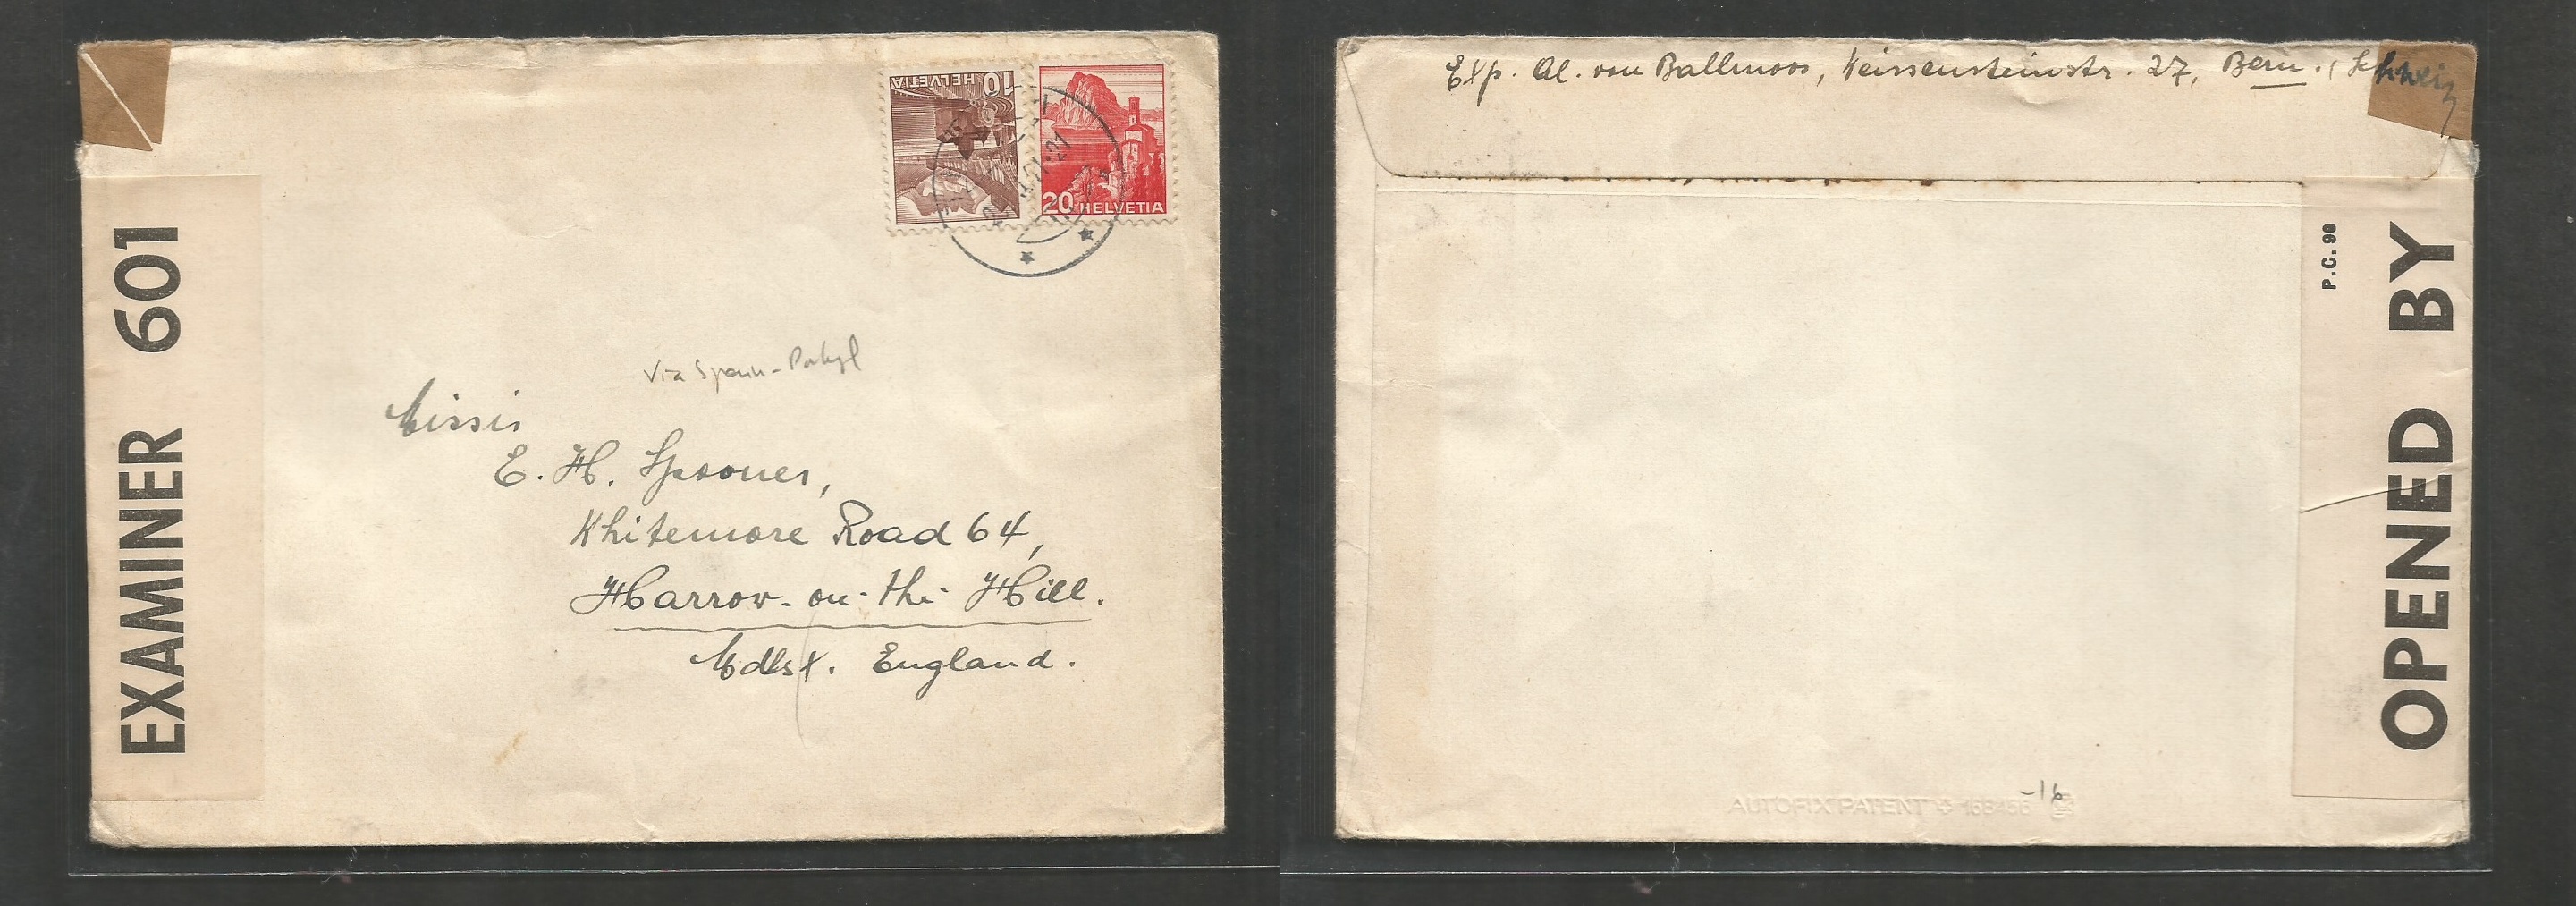 EXAMINER 601
10 HELVETIA
20 HELVETIA
Via Spain - Portugl
Missis
E. H. Spooner,
Whitemore Road 64,
Harrow-on-the Hill.
Mdlsx. England.
Exp. Al. von Ballmoos, Weissensteinstr. 27, Bern. (Schweiz
P.C. 90
OPENED BY
-16
AUTOFIX PATENT + 168456